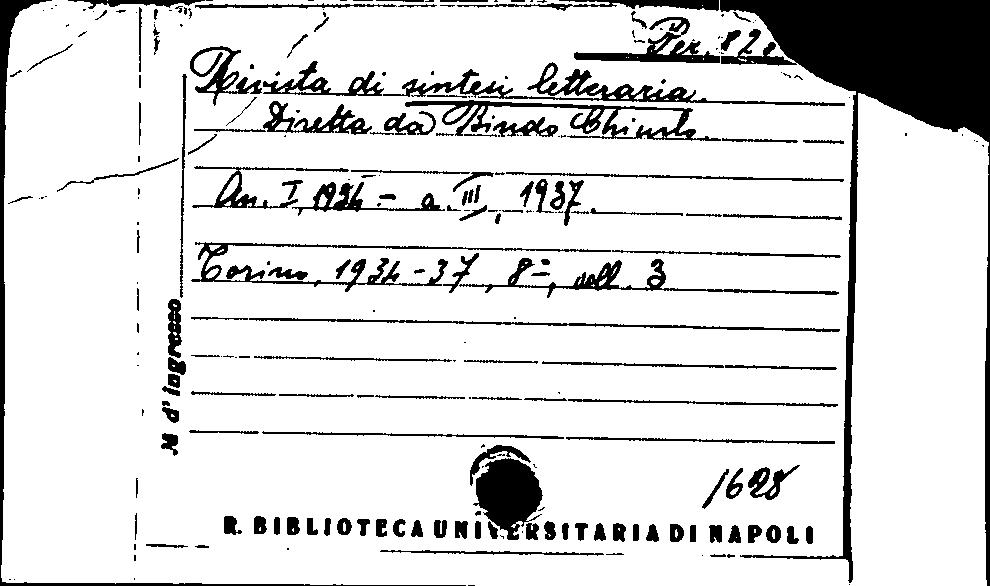 Per. 828
Rivista di sintesi letteraria.
Diretta da Bindo Chiurlo.
An. I, 1934 - a. III, 1937.
Torino, 1934-37, 8º, voll. 3
N d'ingresso
1628
R. BIBLIOTECA UNIVERSITARIA DI NAPOLI